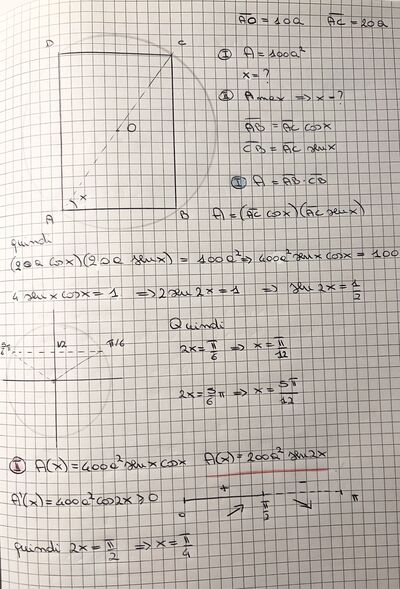 AO = 10a AC = 20a
D C
I A = 100a²
x = ?
II A max => x - ?
AB = AC cosx
O
CB = AC senx
I A = AB · CB
x
A B A = (AC cosx)(AC senx)
quindi
(20a cosx)(20a senx) = 100a² => 400a² senx cosx = 100
4 senx cosx = 1 => 2 sen2x = 1 => sen2x = 1/2
Quindi
1/2 π/6
2x = π/6 => x = π/12
2x = 5/6 π => x = 5π/12
II A(x) = 400a² senx cosx A(x) = 200a² sen2x
A'(x) = 400a² cos2x ≥ 0
+ -
0 π/2 π
quindi 2x = π/2 => x = π/4